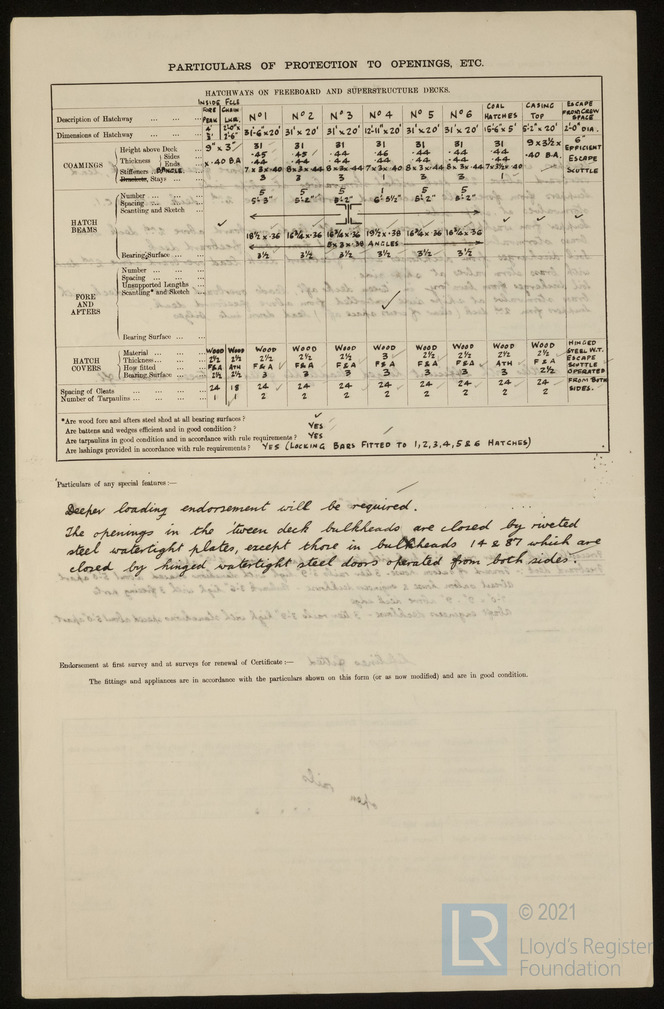 PARTICULARS OF PROTECTION TO OPENINGS, ETC.
HATCHWAYS ON FREEBOARD AND SUPERSTRUCTURE DECKS.
Description of Hatchway ... INSIDE FCLE FORE PEAK CHAIN LKR. No 1 No 2 No 3 No 4 No 5 No 6 COAL HATCHES CASING TOP ESCAPE FROM CREW SPACE
Dimensions of Hatchway ... 4" 3' 2'-0" 2'-6" 31'-6 x 20' 31' x 20' 31' x 20' 12'-11" x 20' 31' x 20' 31' x 20' 15'-6" x 5' 5'-2" x 20' 2'-0" DIA.
COAMINGS
Height above Deck ... 9" x 3" 31 31 31 31 31 31 31 9 x 3½ x 6"
Thickness Sides ... .45 .45 .44 .46 .44 .44 .44 .40 B.A. EFFICIENT
Ends ... x .40 B.A .44 .44 .44 .44 .44 .44 .44 ESCAPE
Stiffeners B. ANGLE 7 x 3 x .40 8 x 3 x .44 8 x 3 x .44 7 x 3 x .40 8 x 3 x .44 8 x 3 x .44 7 x 3½ x .40 SCUTTLE
Brackets, Stays ... 3 3 3 1 3 3 1
HATCH BEAMS
Number ... 5 5 5 1 5 5
Spacing ... 5'-3" 5'-2" 5'-2" 6'-5½" 5'-2" 5'-2"
Scantling and Sketch
18½ x .36 16¾ x .36 16¾ x .36 19½ x .38 16¾ x .36 16¾ x .36
3 x .38 ANGLES
Bearing Surface ... 3½ 3½ 3½ 3½ 3½ 3½
FORE AND AFTERS
Number ...
Spacing ...
Unsupported Lengths ...
Scantling* and Sketch
Bearing Surface ...
HATCH COVERS
Material ... WOOD WOOD WOOD WOOD WOOD WOOD WOOD WOOD WOOD WOOD HINGED
Thickness ... 2½ 2½ 2½ 2½ 2½ 3 2½ 2½ 2½ 2½ STEEL W.T. ESCAPE
How fitted ... F&A ATH F & A F & A F & A F & A F & A F & A ATH F & A SCUTTLE
Bearing Surface ... 2½ 2½ 3 3 3 3 3 3 3 2½ OPERATED
Spacing of Cleats ... 24 18 24 24 24 24 24 24 24 24 FROM BOTH
Number of Tarpaulins ... 1 1 2 2 2 2 2 2 2 2 SIDES.
*Are wood fore and afters steel shod at all bearing surfaces?
Are battens and wedges efficient and in good condition? YES
Are tarpaulins in good condition and in accordance with rule requirements? YES
Are lashings provided in accordance with rule requirements? YES (LOCKING BARS FITTED TO 1,2,3,4,5 & 6 HATCHES)
Particulars of any special features:—
Deeper loading endorsement will be required.
The openings in the 'tween deck bulkheads are closed by riveted
steel watertight plates, except those in bulkheads 14 & 87 which are
closed by hinged watertight steel doors operated from both sides.
Endorsement at first survey and at surveys for renewal of Certificate:—
The fittings and appliances are in accordance with the particulars shown on this form (or as now modified) and are in good condition.
LR
© 2021
Lloyd's Register
Foundation